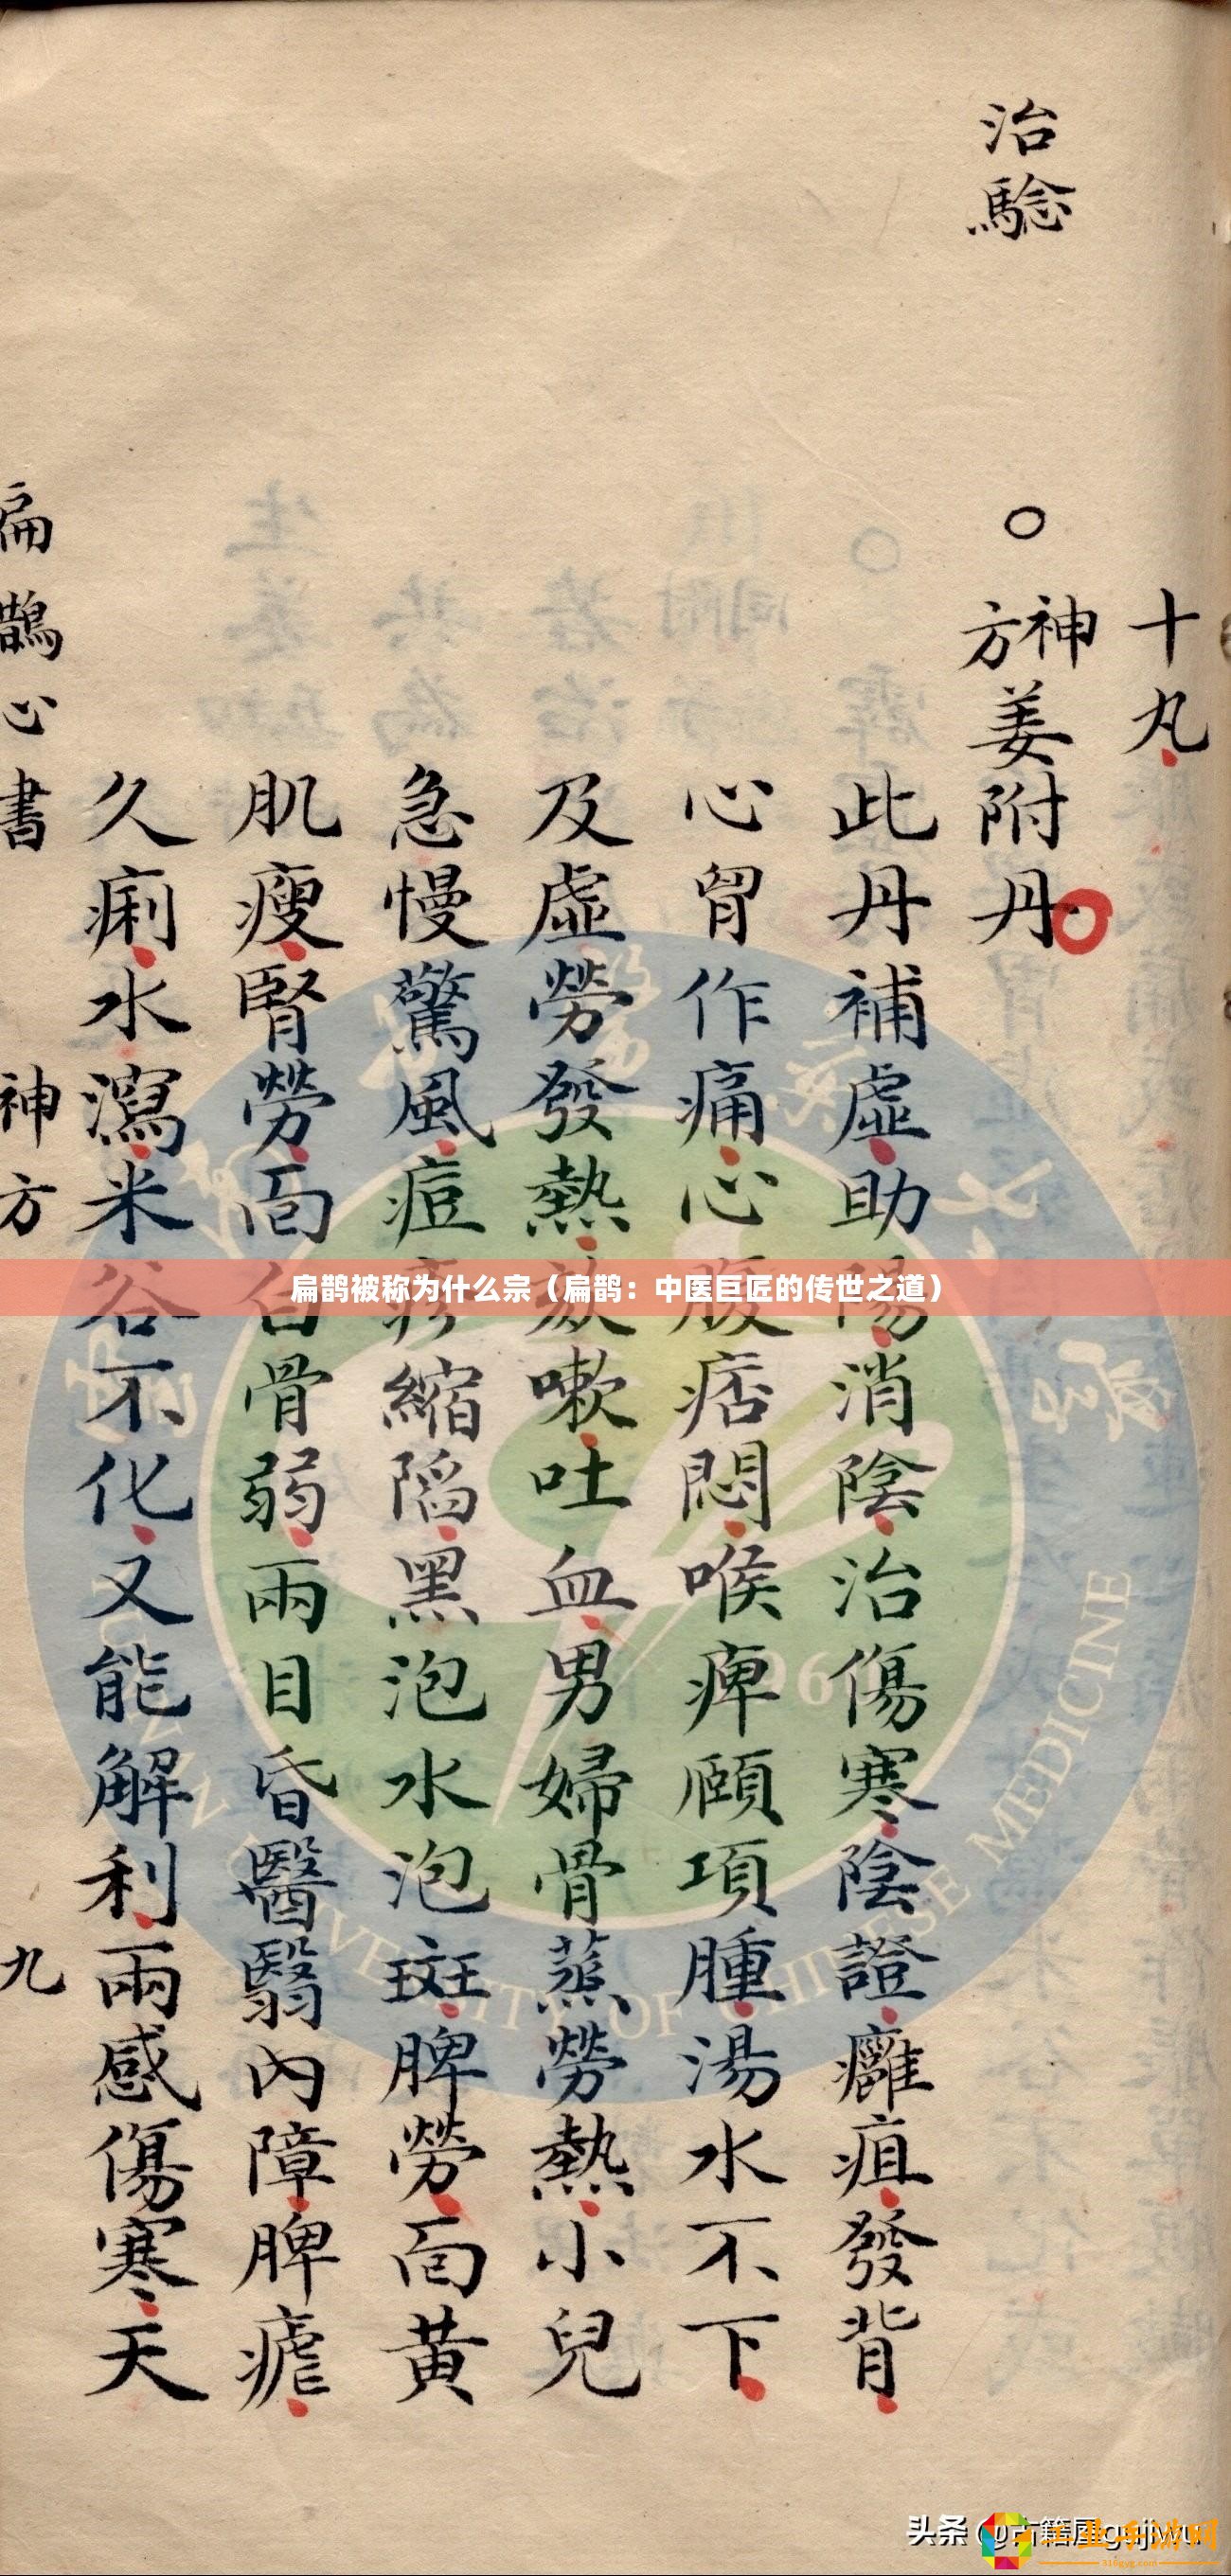 治驗
十丸
○神方姜附丹
此丹補虛助陽消陰治傷寒陰證癰疽發背
心胷作痛心腹痞悶喉痺頤項腫湯水不下
及虛勞發熱欬嗽吐血男婦骨蒸勞熱小兒
急慢驚風痘疹縮陷黑泡水泡斑脾勞面黃
肌瘦腎勞面白骨弱兩目昏醫翳內障脾瘧
久痢水瀉米谷不化又能解利兩感傷寒天
扁鵲心書 神方 九
扁鹊被称为什么宗（扁鹊：中医巨匠的传世之道）
UNIVERSITY OF CHINESE MEDICINE
头条 @古籍屋gujiwu